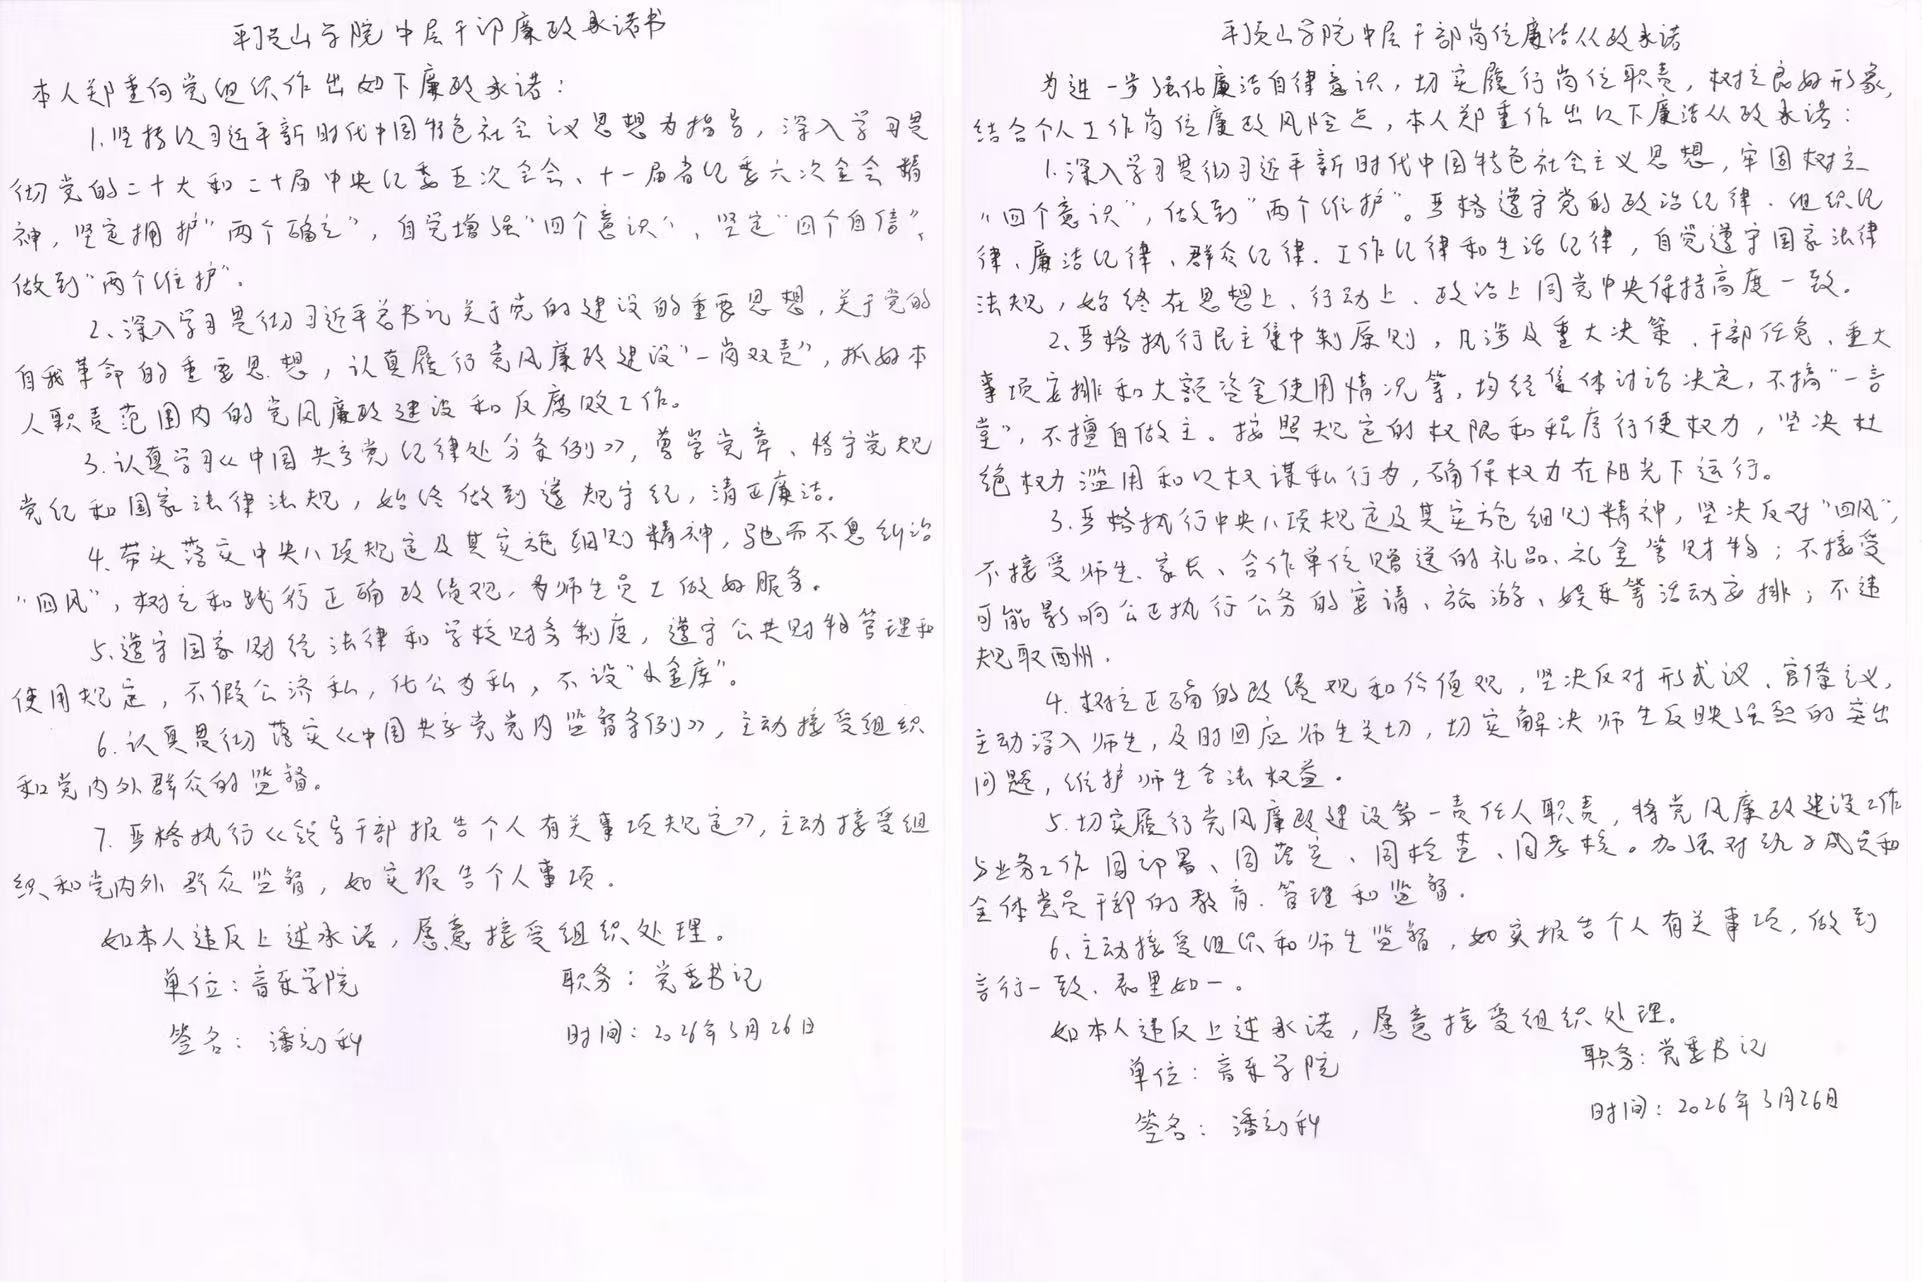 平顶山学院中层干部廉政承诺书
本人郑重向党组织作出如下廉政承诺：
1.坚持以习近平新时代中国特色社会主义思想为指导，深入学习贯
彻党的二十大和二十届中央纪委五次全会、十一届省纪委六次全会精
神，坚定拥护“两个确立”，自觉增强“四个意识”、坚定“四个自信”、
做到“两个维护”。
2、深入学习贯彻习近平总书记关于党的建设的重要思想，关于党的
自我革命的重要思想，认真履行党风廉政建设“一岗双责”，抓好本
人职责范围内的党风廉政建设和反腐败工作。
3.认真学习《中国共产党纪律处分条例》，尊学党章、恪守党规
党纪和国家法律法规，始终做到遵规守纪，清正廉洁。
4.带头落实中央八项规定及其实施细则精神，驰而不息纠治
“四风”，树立和践行正确政绩观，为师生员工做好服务。
5.遵守国家财经法律和学校财务制度，遵守公共财物管理和
使用规定，不假公济私，化公为私，不设“小金库”。
6.认真贯彻落实《中国共产党党内监督条例》，主动接受组织
和党内外群众的监督。
7.严格执行《领导干部报告个人有关事项规定》，主动接受组
织和党内外群众监督，如实报告个人事项。
如本人违反上述承诺，愿意接受组织处理。
单位：音乐学院 职务：党委书记
签名：潘 科 时间：2026年3月26日
平顶山学院中层干部岗位廉洁从政承诺
为进一步强化廉洁自律意识，切实履行岗位职责，树立良好形象，
结合个人工作岗位廉政风险点，本人郑重作出以下廉洁从政承诺：
1.深入学习贯彻习近平新时代中国特色社会主义思想，牢固树立
“四个意识”，做到“两个维护”。严格遵守党的政治纪律、组织纪
律、廉洁纪律、群众纪律、工作纪律和生活纪律，自觉遵守国家法律
法规，始终在思想上、行动上、政治上同党中央保持高度一致。
2、严格执行民主集中制原则，凡涉及重大决策、干部任免、重大
事项安排和大额资金使用情况等，均经集体讨论决定，不搞“一言
堂”，不擅自做主。按照规定的权限和程序行使权力，坚决杜
绝权力滥用和以权谋私行为，确保权力在阳光下运行。
3.严格执行中央八项规定及其实施细则精神，坚决反对“四风”，
不接受师生、家长、合作单位赠送的礼品、礼金等财物；不接受
可能影响公正执行公务的宴请、旅游、娱乐等活动安排；不违
规取酉州.
4.树立正确的政绩观和价值观，坚决反对形式议、官僚主义，
主动深入师生，及时回应师生关切，切实解决师生反映强烈的突出
问题，维护师生合法权益。
5.切实履行党风廉政建设第一责任人职责，将党风廉政建设工作
与业务工作同部署、同落实、同检查、同考核。加强对班子成员和
全体党员干部的教育、管理和监督.
6、主动接受组织和师生监督，如实报告个人有关事项，做到
言行一致、表里如一。
如本人违反上述承诺，愿意接受组织处理。
单位：音乐学院 职务：党委书记
签名：潘 科 时间：2026年3月26日